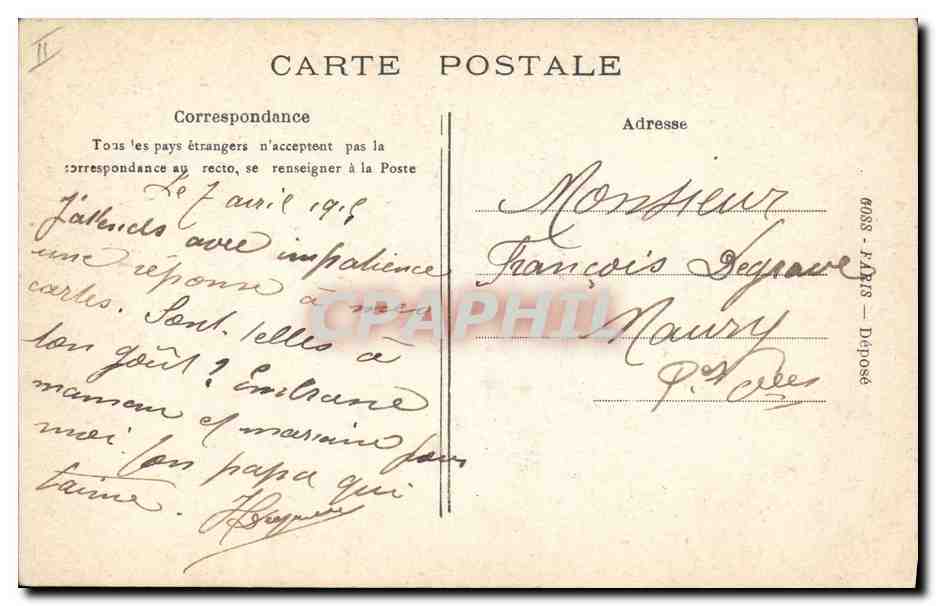 II
CARTE POSTALE
Correspondance
Tous les pays étrangers n'acceptent pas la
correspondance au recto, se renseigner à la Poste
Le 7 avril 1915
J'attends avec impatience
une réponse à mes
cartes. Sont-elles à
ton goût ? Embrasse
maman et marraine pour
moi. Ton papa qui
t'aime.
Adresse
Monsieur
François Degrave
Maury
P.es Ories
6088 - PARIS — Déposé
CPAPHIL